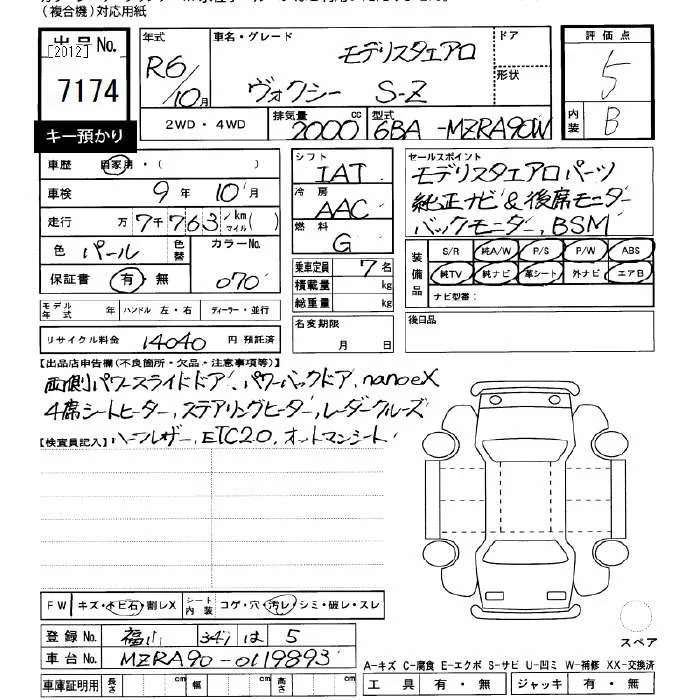 (複合機)対応用紙
出品No.
[2012]
7174
キー預かり
年式 R6/10月
車名・グレード モデリスタエアロ
ヴォクシー S-Z
ドア
形状
2WD・4WD
排気量 2000 cc
型式 6BA-MZRA90W
評価点 5
内装 B
車歴 自家用・( )
車検 9年10月
走行 万7千763 km マイル ( )
色 パール 色替 カラーNo. 070
保証書 有・無
モデル年式 年 ハンドル 左・右 ディーラー・並行
リサイクル料金 14040 円 預託済
シフト IAT
冷房 AAC
燃料 G
乗車定員 7名
積載量 kg
総重量 kg
名変期限 月 日
セールスポイント
モデリスタエアロパーツ
純正ナビ&後席モニター
バックモニター, BSM
装備品 S/R 純A/W P/S P/W ABS
純TV 純ナビ 革シート 外ナビ エアB
ナビ型番:
後日品
【出品店申告欄(不良箇所・欠品・注意事項等)】
両側パワースライドドア、パワーバックドア、nanoeX
4席シートヒーター, ステアリングヒーター, レーダークルーズ
ハーフレザー, ETC2.0, オットマンシート
【検査員記入】
FW キズ・トビ石・割レX シート内装 コゲ・穴・汚レ・シミ・破レ・スレ
登録No. 福山 347 は 5
車台No. MZRA90-0119893
車庫証明用 長さ cm 幅 cm 高さ cm
スペア
A-キズ C-腐食 E-エクボ S-サビ U-凹ミ W-補修 XX-交換済
工具 有・無 ジャッキ 有・無